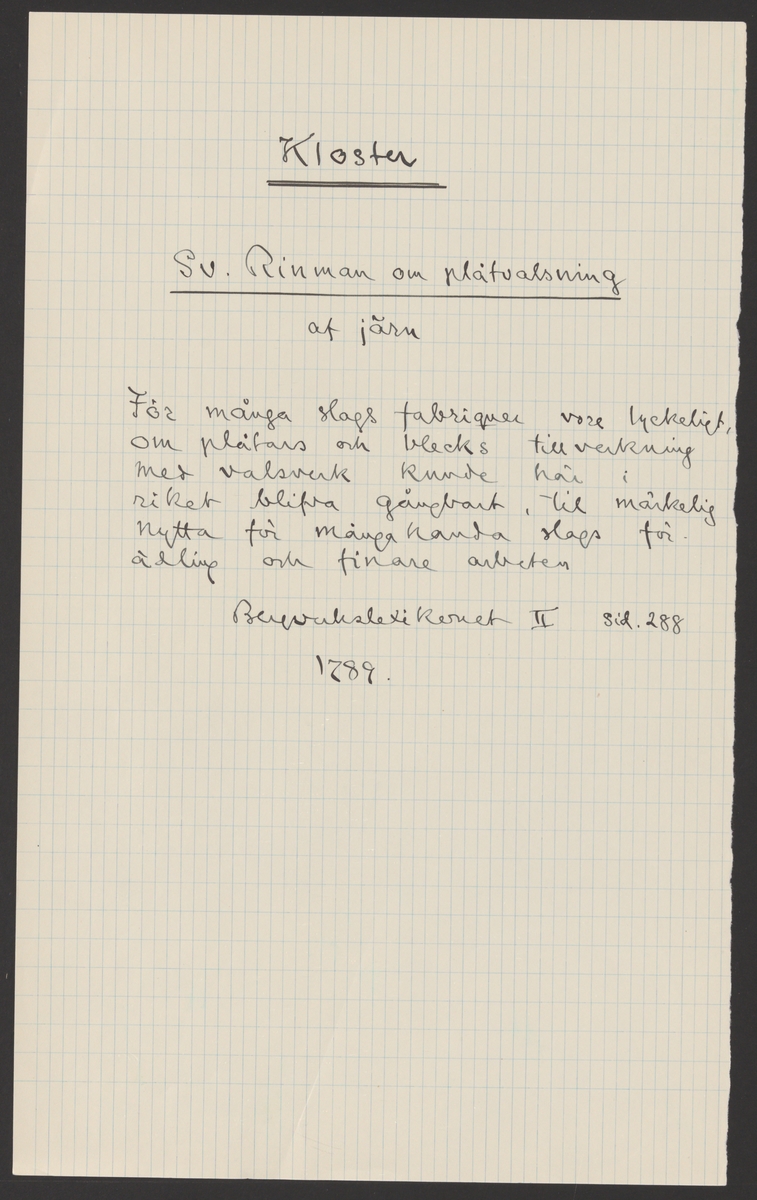 Kloster
Sv. Rinman om plåtvalsning
af järn
För många slags fabriquer vore lyckeligt,
om plåtars och blecks tillverkning
med valsverk kunde här i
riket blifva gångbart, til märkelig
nytta för många handa slags för-
ädling och finare arbeten
Bergverkslexikonet II sid. 288
1789.